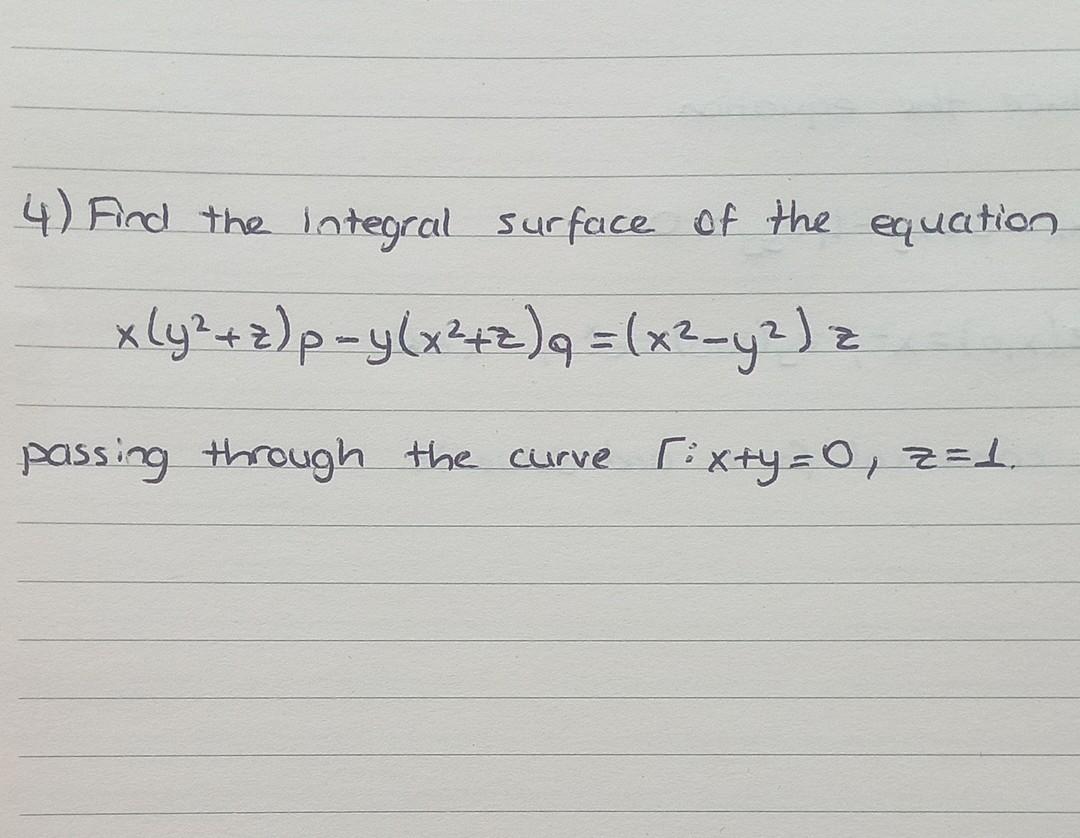 4) Find the integral surface of the equation
x(y²+z)p-y(x²+z)q=(x²-y²)z
passing through the curve Γ: x+y=0, z=1.